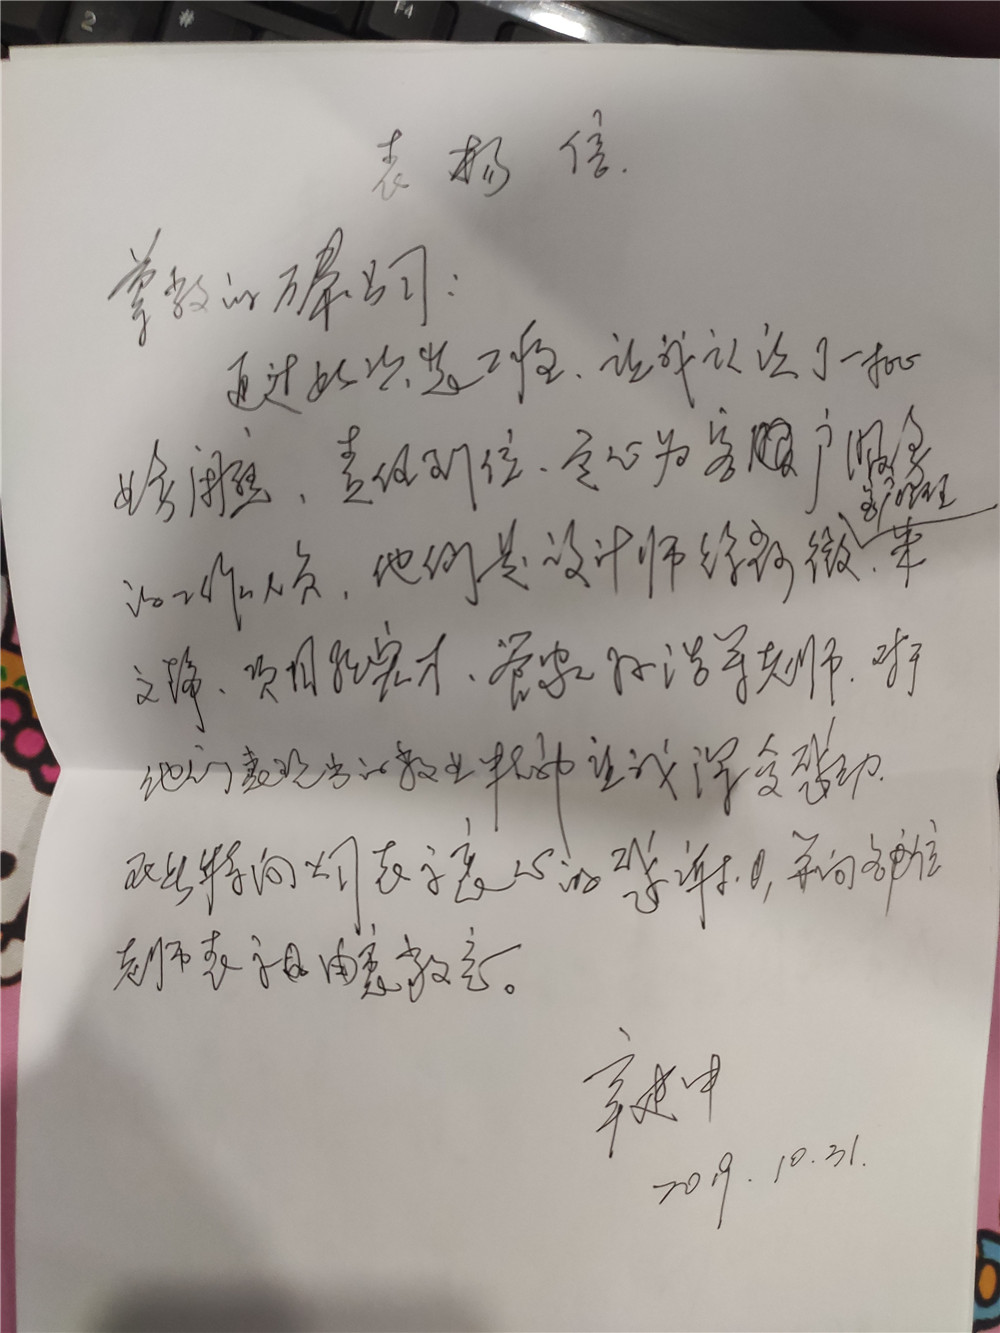 2
*
F4
表扬信.
尊敬的万华公司:
通过此次装工程、让我认识了一批
业务闲熟、责任到位、全心为客户服务
客户经理
的工作人员，他们是设计师徐莉微、朱
文静、项目经实才、管家孙浩等老师. 对于
他们表现出的敬业精神让我深受感动.
在此特向公司表示衷心的感谢, 并向各位
老师表示由衷敬意。
辛建中
2019.10.31.